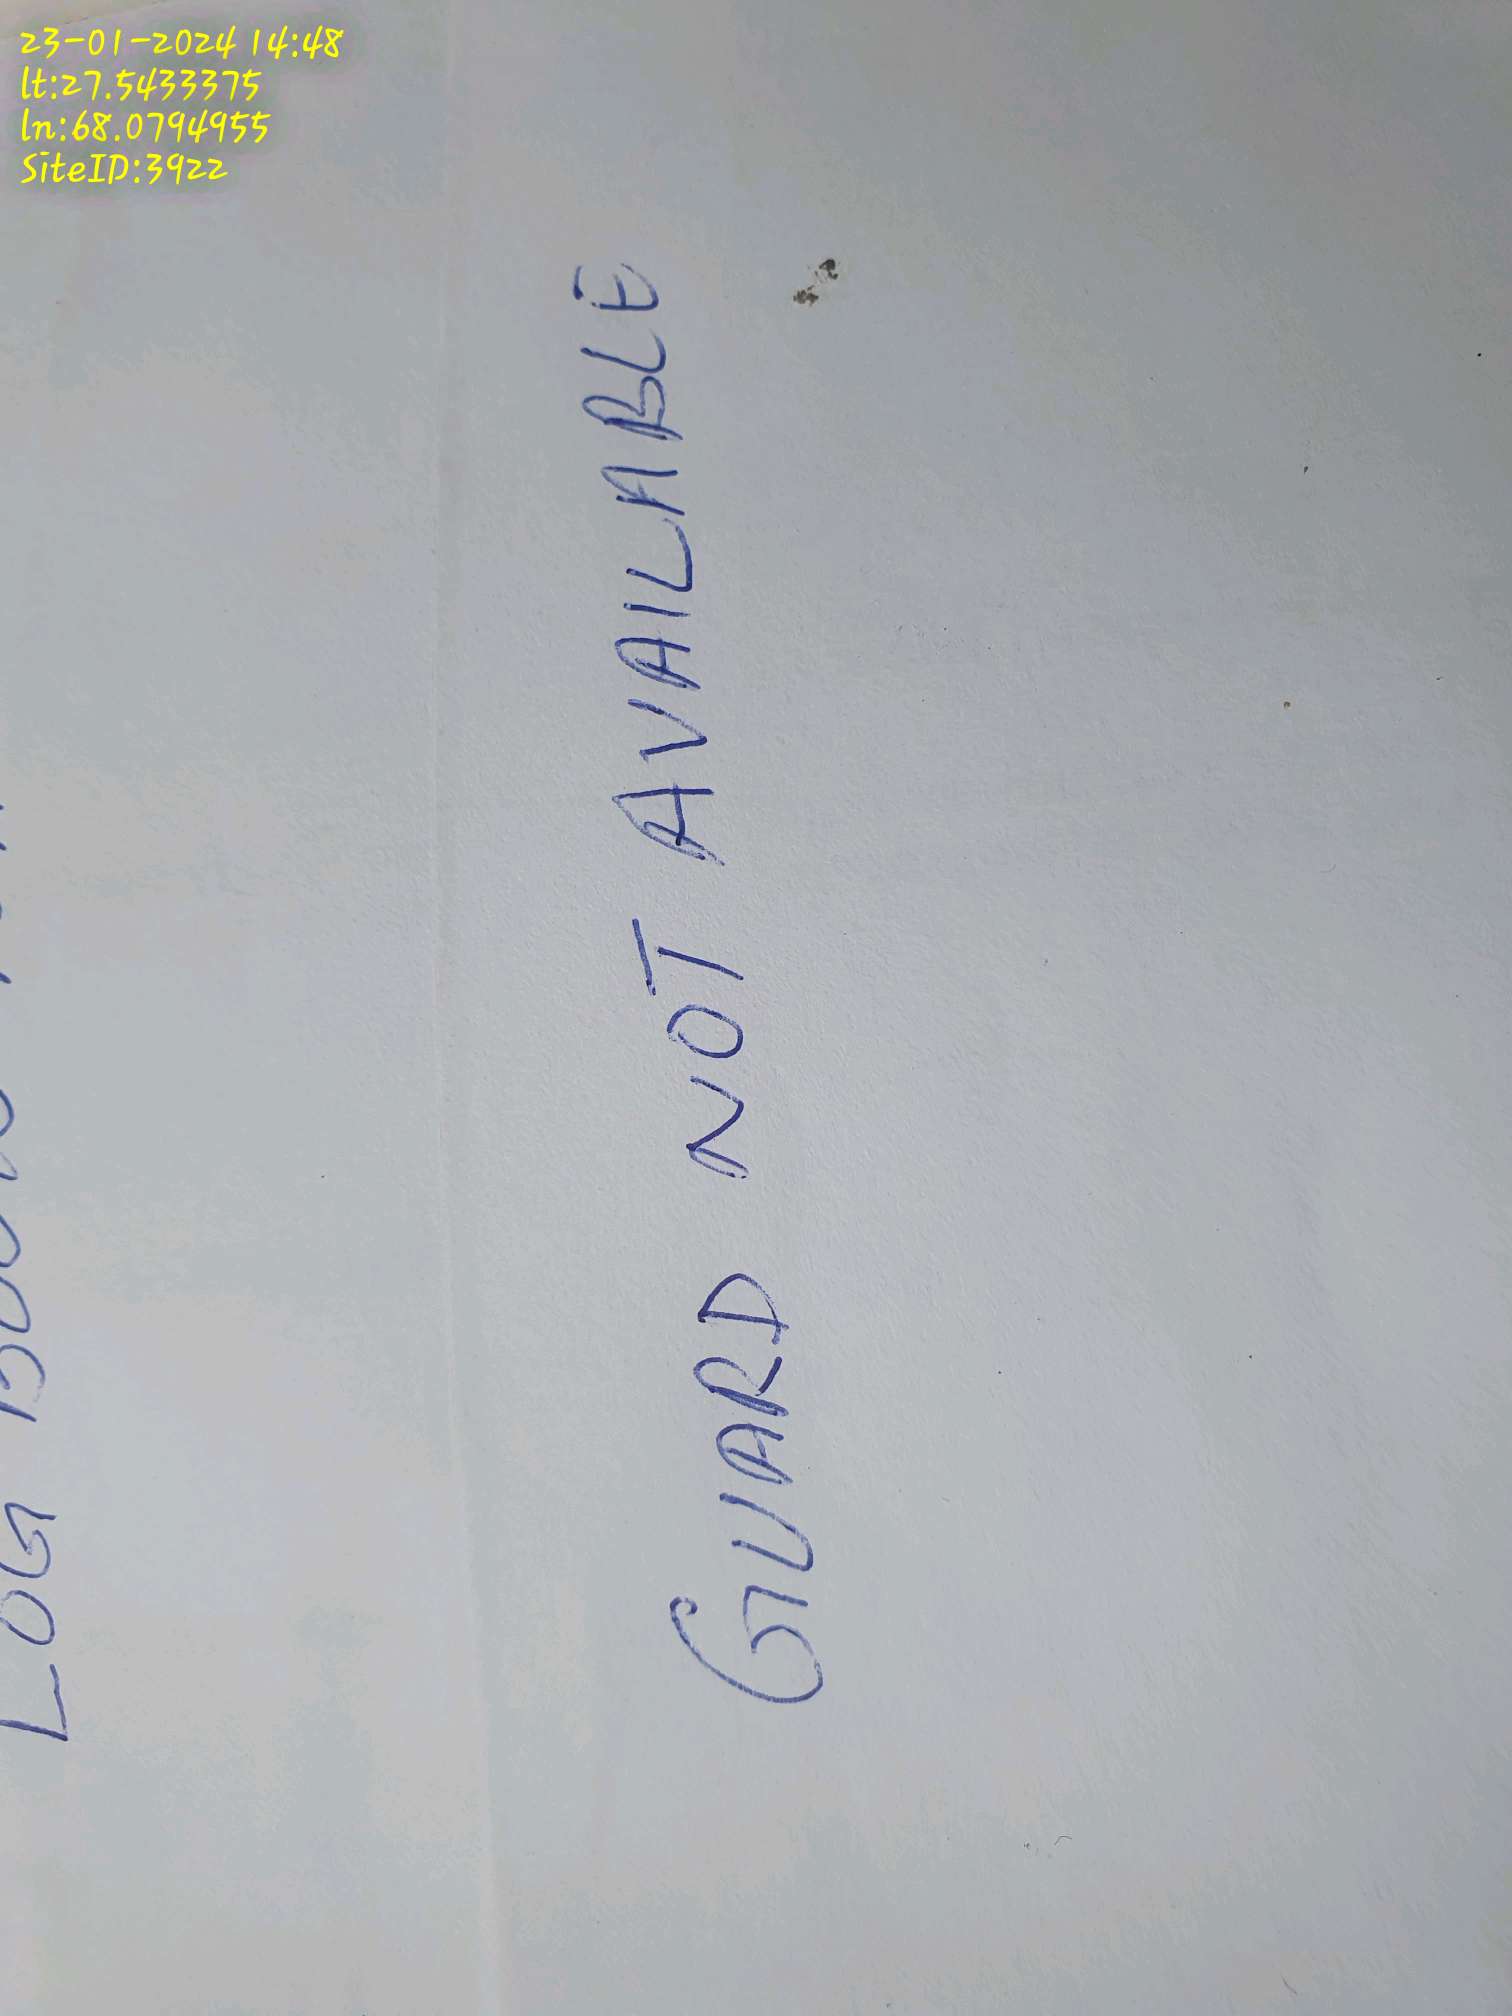 23-01-2024 14:48
lt:27.5433375
ln:68.0794955
SiteID:3922
LOG
GUARD NOT AVAILABLE